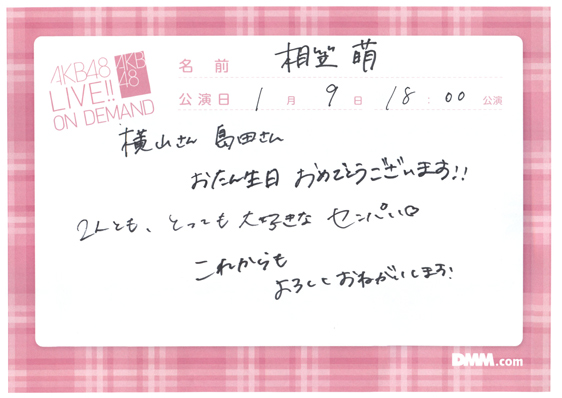 AKB48
LIVE!!
ON DEMAND
AKB
48
名前 相笠 萌
公演日 1月9日 18:00 公演
横山さん 島田さん
おたん生日 おめでとうございます!!
2人とも、とっても大好きな センパイ♡
これからも
よろしくおねがいします!
DMM.com